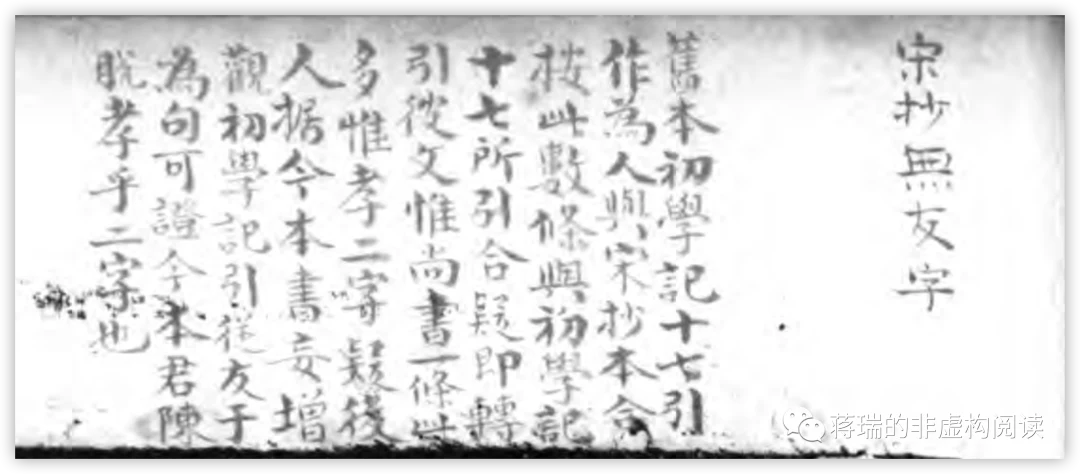 宋抄無友字
舊本初學記十七引
作為人與宋抄本合
按此數條與初學記
十七所引合疑即轉
引彼文惟尚書一條此
多惟孝二字疑後
人据今本書妄增
觀初學記引從友于
為句可證今本君陳
脫孝乎二字也
蒋瑞的非虚构阅读